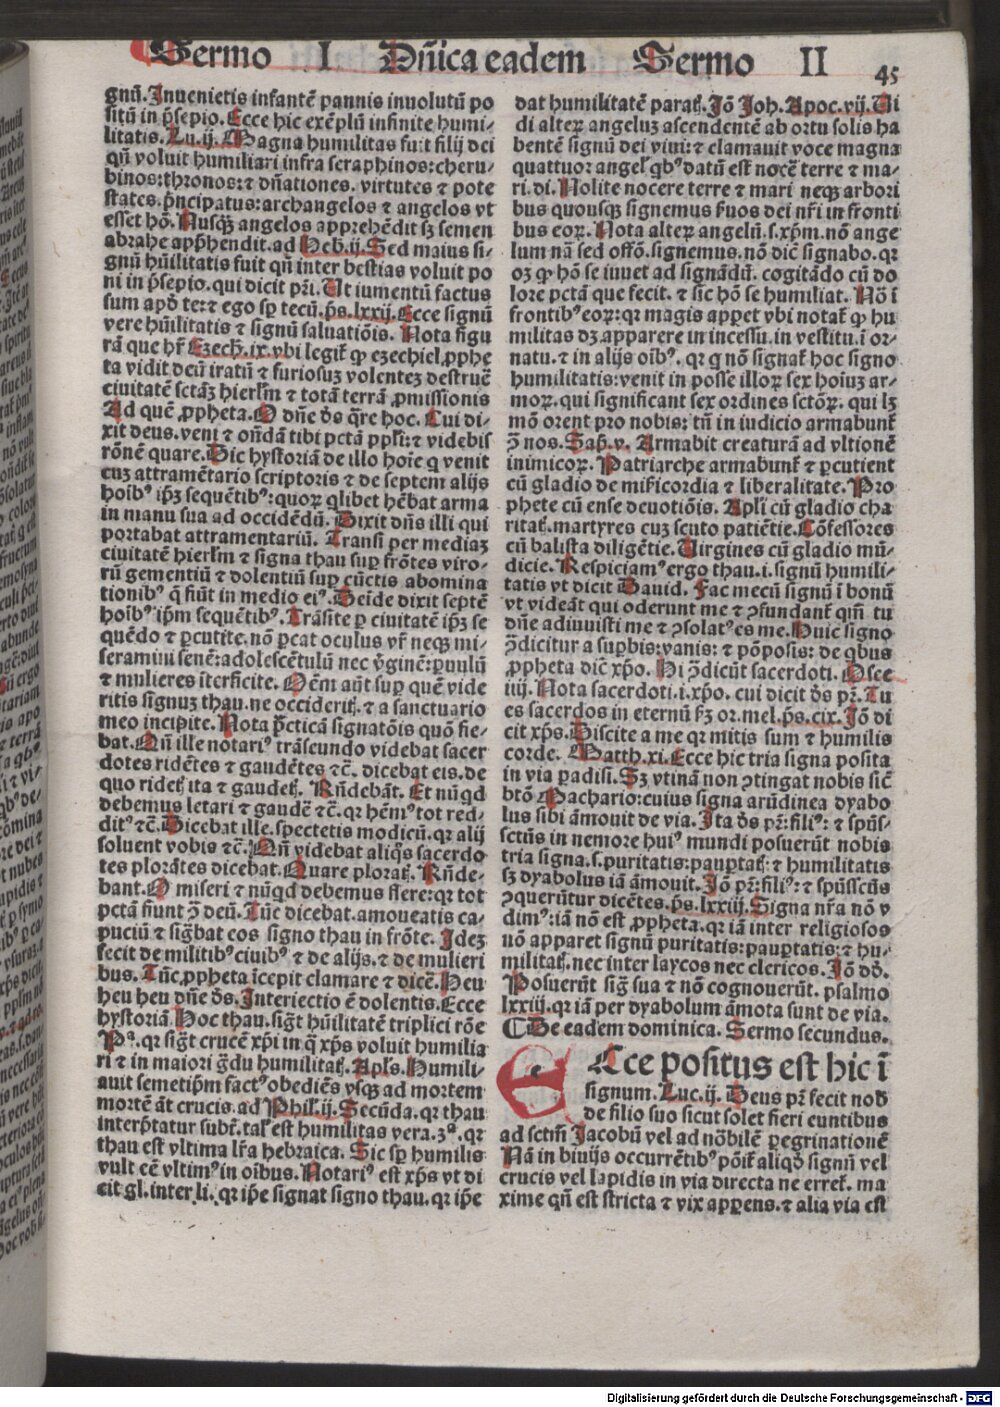 Sermo I Dñica eadem Sermo II 45
gnũ. Inuenietis infantẽ pannis inuolutũ po
sitũ in p̃sepio. Ecce hic exẽplũ infinite humi-
litatis. Lu. ij. Magna humilitas fuit filij dei
qñ voluit humiliari infra seraphinos: cheru-
binos: thronos: ⁊ dñationes. virtutes ⁊ pote
states. p̃ncipatus: archangelos ⁊ angelos vt
esset hõ. Nusqꝫ angelos apprehẽdit sꝫ semen
abrahe app̃hendit. ad Heb. ij. Sed maius si-
gnũ hũilitatis fuit qñ inter bestias voluit po
ni in p̃sepio. qui dicit pr̃i. Ut iumentũ factus
sum apđ te: ⁊ ego sp̱ tecũ. p̃s. lxxij. Ecce signũ
vere hũilitatis ⁊ signũ saluatiõis. Nota figu
rã que hr̃ Ezech. ix. vbi legit̃ ꝙ ezechiel ꝓphe
ta vidit deũ iratũ ⁊ furiosuꝫ volenteꝫ destruẽ
ciuitatẽ sctãꝫ hierlm̃ ⁊ totã terrã ꝓmissionis
Ad quẽ ꝓpheta. O dñe ds̃ q̃re hoc. Cui di-
xit deus. veni ⁊ oñdã tibi pctã ppli: ⁊ videbis
rõnẽ quare. Dic hystoriã de illo hoĩe q venit
cuꝫ attramẽtario scriptoris ⁊ de septem alijs
hoĩbꝰ ip̃ꝫ sequẽtibꝰ: quoꝝ q̃libet hẽbat arma
in manu sua ad occidẽdũ. Dixit dñs illi qui
portabat attramentariũ. Transi per mediaꝫ
ciuitatẽ hierlm̃ ⁊ signa thau sup̱ frõtes viro-
rũ gementiũ ⁊ dolentiũ sup̱ cũctis abomina
tionibꝰ q̃ fiũt in medio eiꝰ. Deĩde dixit septẽ
hoĩbꝰ ip̃m sequẽtibꝰ. Trãsite ꝑ ciuitatẽ ip̃ꝫ se
quẽdo ⁊ ꝑcutite. nõ ꝑcat oculus vr̃ neqꝫ mi-
seramini senẽ: adolescẽtulũ nec v̓ginẽ: ꝑuulũ
⁊ mulieres ĩterficite. Oẽm aũt sup̱ quẽ vide
ritis signuꝫ thau. ne occiderit̃. ⁊ a sanctuario
meo incipite. Nota p̃cticã signatõis quõ fie-
bat. Qñ ille notariꝰ trãseundo videbat sacer
dotes ridẽtes ⁊ gaudẽtes ⁊c̃. dicebat eis. de
quo ridet̃ ita ⁊ gaudet̃. Rñdebãt. Et nũqd
debemus letari ⁊ gaudẽ ⁊c̃. qꝛ hẽmꝰ tot red-
ditꝰ ⁊c̃. Dicebat ille. spectetis modicũ. qꝛ alij
soluent vobis ⁊c̃. Qñ videbat aliq̃s sacerdo
tes plorãtes dicebat. Quare plorat̃. Rñde-
bant. O miseri ⁊ nũqd debemus flere: qꝛ tot
pctã fiunt ꝯ deũ. Tũc dicebat. amoueatis ca-
puciũ ⁊ sig̃bat eos signo thau in frõte. Ideꝫ
fecit de militibꝰ ciuibꝰ ⁊ de alijs. ⁊ de mulieri
bus. Tũc ꝓpheta ĩcepit clamare ⁊ dicẽ. Heu
heu heu dñe ds̃. Interiectio ẽ dolentis. Ecce
hystoriã. Hoc thau. sig̃t hũilitatẽ triplici rõe
Pª. qꝛ sig̃t crucẽ xp̃i in q̃ xp̃s voluit humilia
ri ⁊ in maiori g̃du humilitat̃. Apl̃s. Humili-
auit semetip̃m factꝰ obediẽs vsqꝫ ad mortem
mortẽ ãt crucis. ad Phil. ij. Secũda. qꝛ thau
interp̃tatur subt̃. tal̃ est humilitas vera. 3ª. qꝛ
thau est vltima lr̃a hebraica. Sic sp̱ humilis
vult eẽ vltimꝰ in oĩbus. Notariꝰ est xp̃s vt di
cit gl. inter li. qꝛ ip̃e signat signo thau. qꝛ ip̃e
dat humilitatẽ parat̃. Iõ Joh. Apoc. vij. Ui
di alteꝝ angeluꝫ ascendentẽ ab ortu solis ha
bentẽ signũ dei viui: ⁊ clamauit voce magna
quattuor angel̃ qbꝰ datũ est nocẽ terre ⁊ ma-
ri. di. Nolite nocere terre ⁊ mari neqꝫ arbori
bus quousqꝫ signemus ẜuos dei nr̃i in fronti
bus eoꝝ. Nota alteꝝ angelũ. s. xp̃m. nõ ange
lum nã sed offõ. signemus. nõ dic̃ signabo. qꝛ
oꝫ ꝙ hõ se iuuet ad signãdũ. cogitãdo cũ do
lore pctã que fecit. ⁊ sic̃ hõ se humiliat. Nõ ĩ
frontibꝰ eoꝝ: qꝛ magis appet vbi notat̃ ꝙ hu
militas dꝫ apparere in incessu. in vestitu. ĩ or-
natu. ⁊ in alijs oĩbꝰ. qꝛ q nõ signat̃ hoc signo
humilitatis: venit in posse illoꝝ sex hoĩuꝫ ar-
moꝝ. qui significant sex ordines sctõꝝ. qui lꝫ
mõ orent pro nobis: tñ in iudicio armabunt̃
ꝯ nos. Sap̃. v. Armabit creaturã ad vltionẽ
inimicoꝝ. Patriarche armabunt̃ ⁊ ꝑcutient
cũ gladio de mĩficordia ⁊ liberalitate. Pro
phete cũ ense deuotiõis. Apli cũ gladio cha
ritat̃. martyres cuꝫ scuto patiẽtie. Cõfessores
cũ balista diligẽtie. Uirgines cũ gladio mũ-
dicie. Respiciamꝰ ergo thau. i. signũ humili-
tatis vt dicit Dauid. Fac mecũ signũ ĩ bonũ
vt videãt qui oderunt me ⁊ ꝯfundant̃ qm̃ tu
dñe adiuuisti me ⁊ ꝯsolatꝰ es me. Huic signo
ꝯdicitur a supbis: vanis: ⁊ põposis: de qbus
ꝓpheta dic̃ xp̃o. Hi ꝯdicũt sacerdoti. Osee
iiij. Nota sacerdoti. i. xp̃o. cui dicit ds̃ pr̃. Tu
es sacerdos in eternũ ẜꝫ or. mel. p̃s. cix. Iõ di
cit xp̃s. Discite a me qꝛ mitis sum ⁊ humilis
corde. Matth. xi. Ecce hic tria signa posita
in via ꝑadisi. Sꝫ vtinã non ꝯtingat nobis sic̃
btõ Machario: cuius signa arũdinea dyabo
lus sibi ãmouit de via. Ita ds̃ pr̃: filiꝰ: ⁊ spũs-
sctũs in nemore huiꝰ mundi posuerũt nobis
tria signa. s. puritatis: pauptat̃: ⁊ humilitatis
sꝫ dyabolus iã ãmouit. Iõ pr̃: filiꝰ: ⁊ spũssctũs
ꝯquerũtur dicẽtes. p̃s. lxxiij. Signa nr̃a nõ v
dimꝰ: iã nõ est ꝓpheta. qꝛ iã inter religiosos
nõ apparet signũ puritatis: pauptatis: ⁊ hu-
militat̃. nec inter laycos nec clericos. Iõ dđ.
Posuerũt sig̃ sua ⁊ nõ cognouerũt. psalmo
lxxiij. qꝛ iã per dyabolum ãmota sunt de via.
¶ De eadem dominica. Sermo secundus.
Ecce positus est hic ĩ
signum. Luc. ij. Deus pr̃ fecit nob̃
de filio suo sicut solet fieri euntibus
ad sctm̃ Jacobũ vel ad nõbilẽ ꝑegrinationẽ
Nã in biuijs occurrẽtibꝰ põit̃ aliqđ signũ vel
crucis vel lapidis in via directa ne erret̃. ma
xime qñ est stricta ⁊ vix apparens. ⁊ alia via est
Digitalisierung gefördert durch die Deutsche Forschungsgemeinschaft - DFG